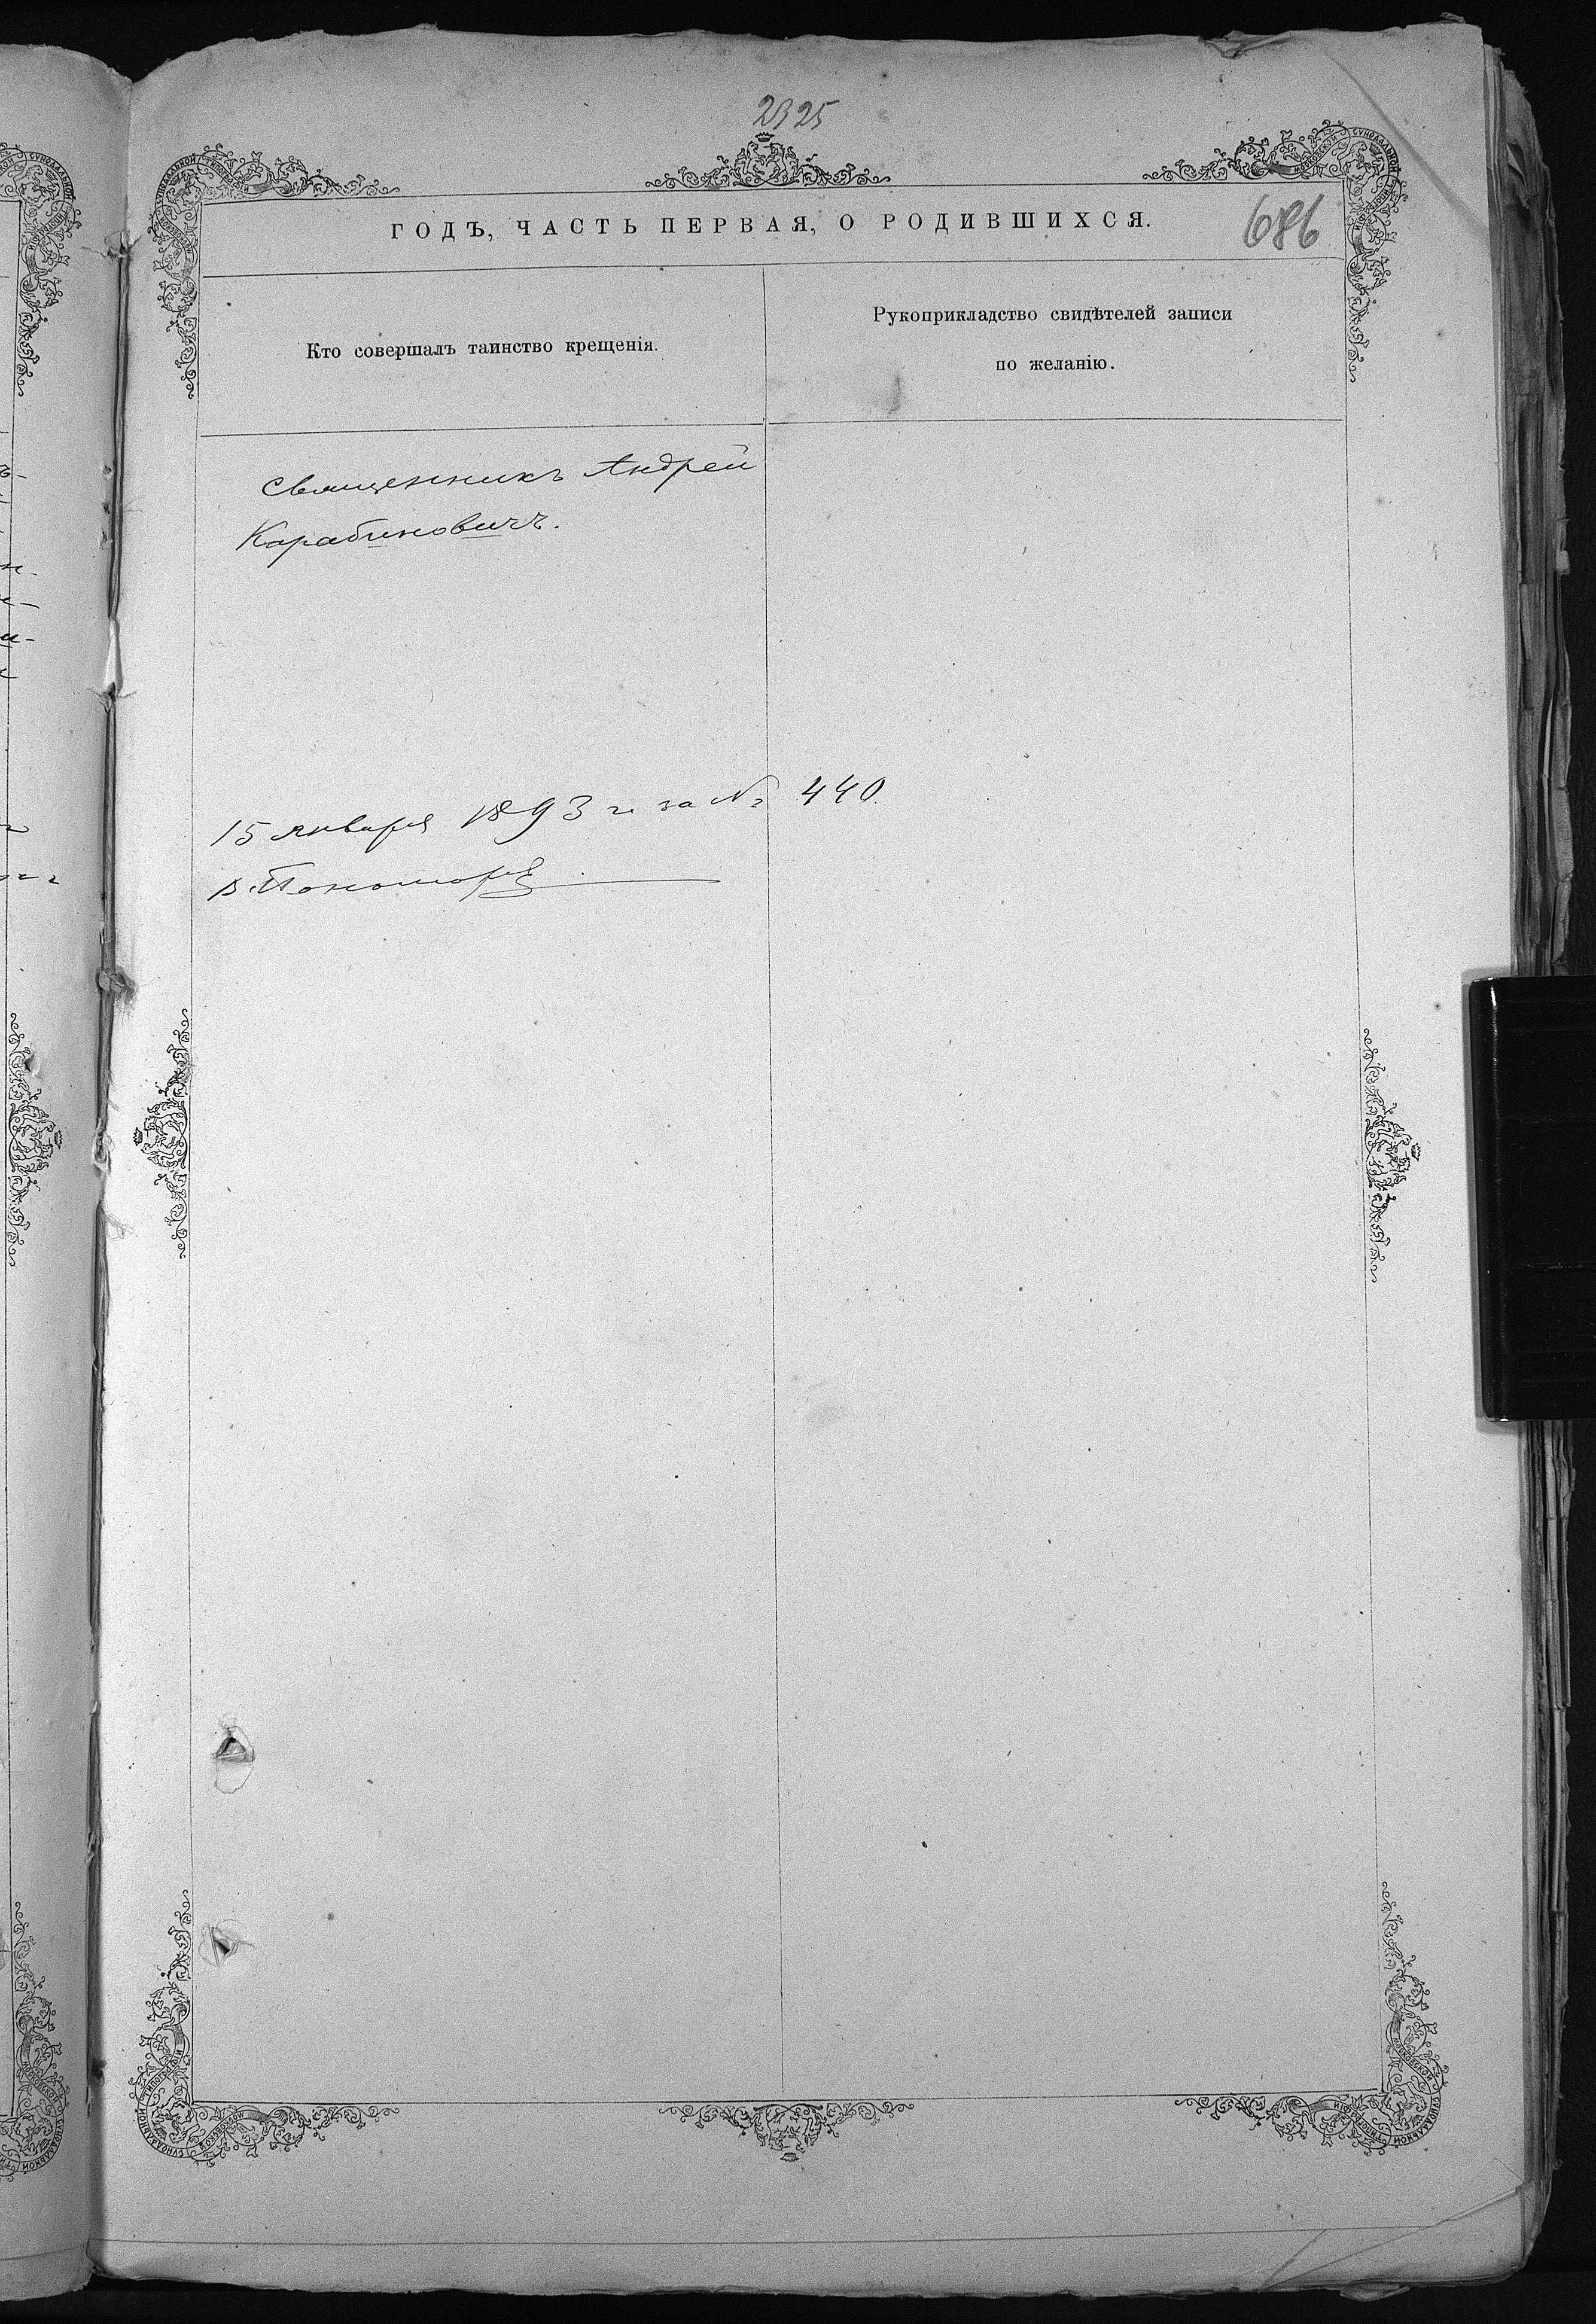 2925
ГОДЪ, ЧАСТЬ ПЕРВАЯ, О РОДИВШИХСЯ.
686
Кто совершалъ таинство крещенія.
Рукоприкладство свидѣтелей записи
по желанію.
Священникъ Андрей
Карабиновичъ.
15 января 1893 г. за № 440.